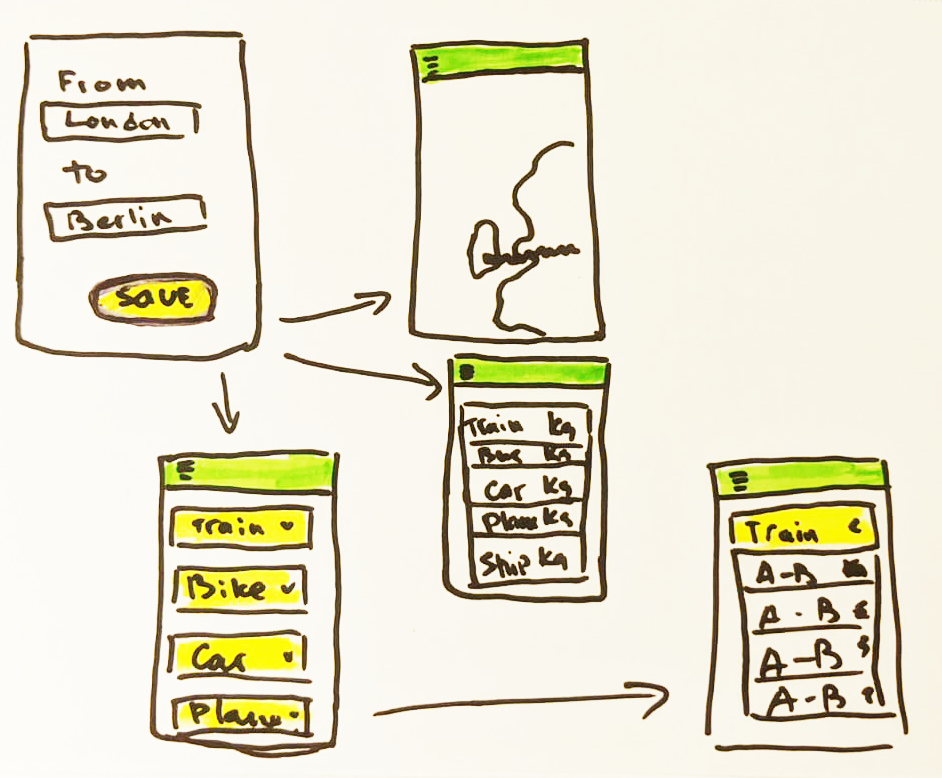 From
London
to
Berlin
SAVE
Train kg
kg
Car kg
Plane kg
Ship kg
Train
Bike
Car
Plane
Train
A-B
A-B
A-B
A-B